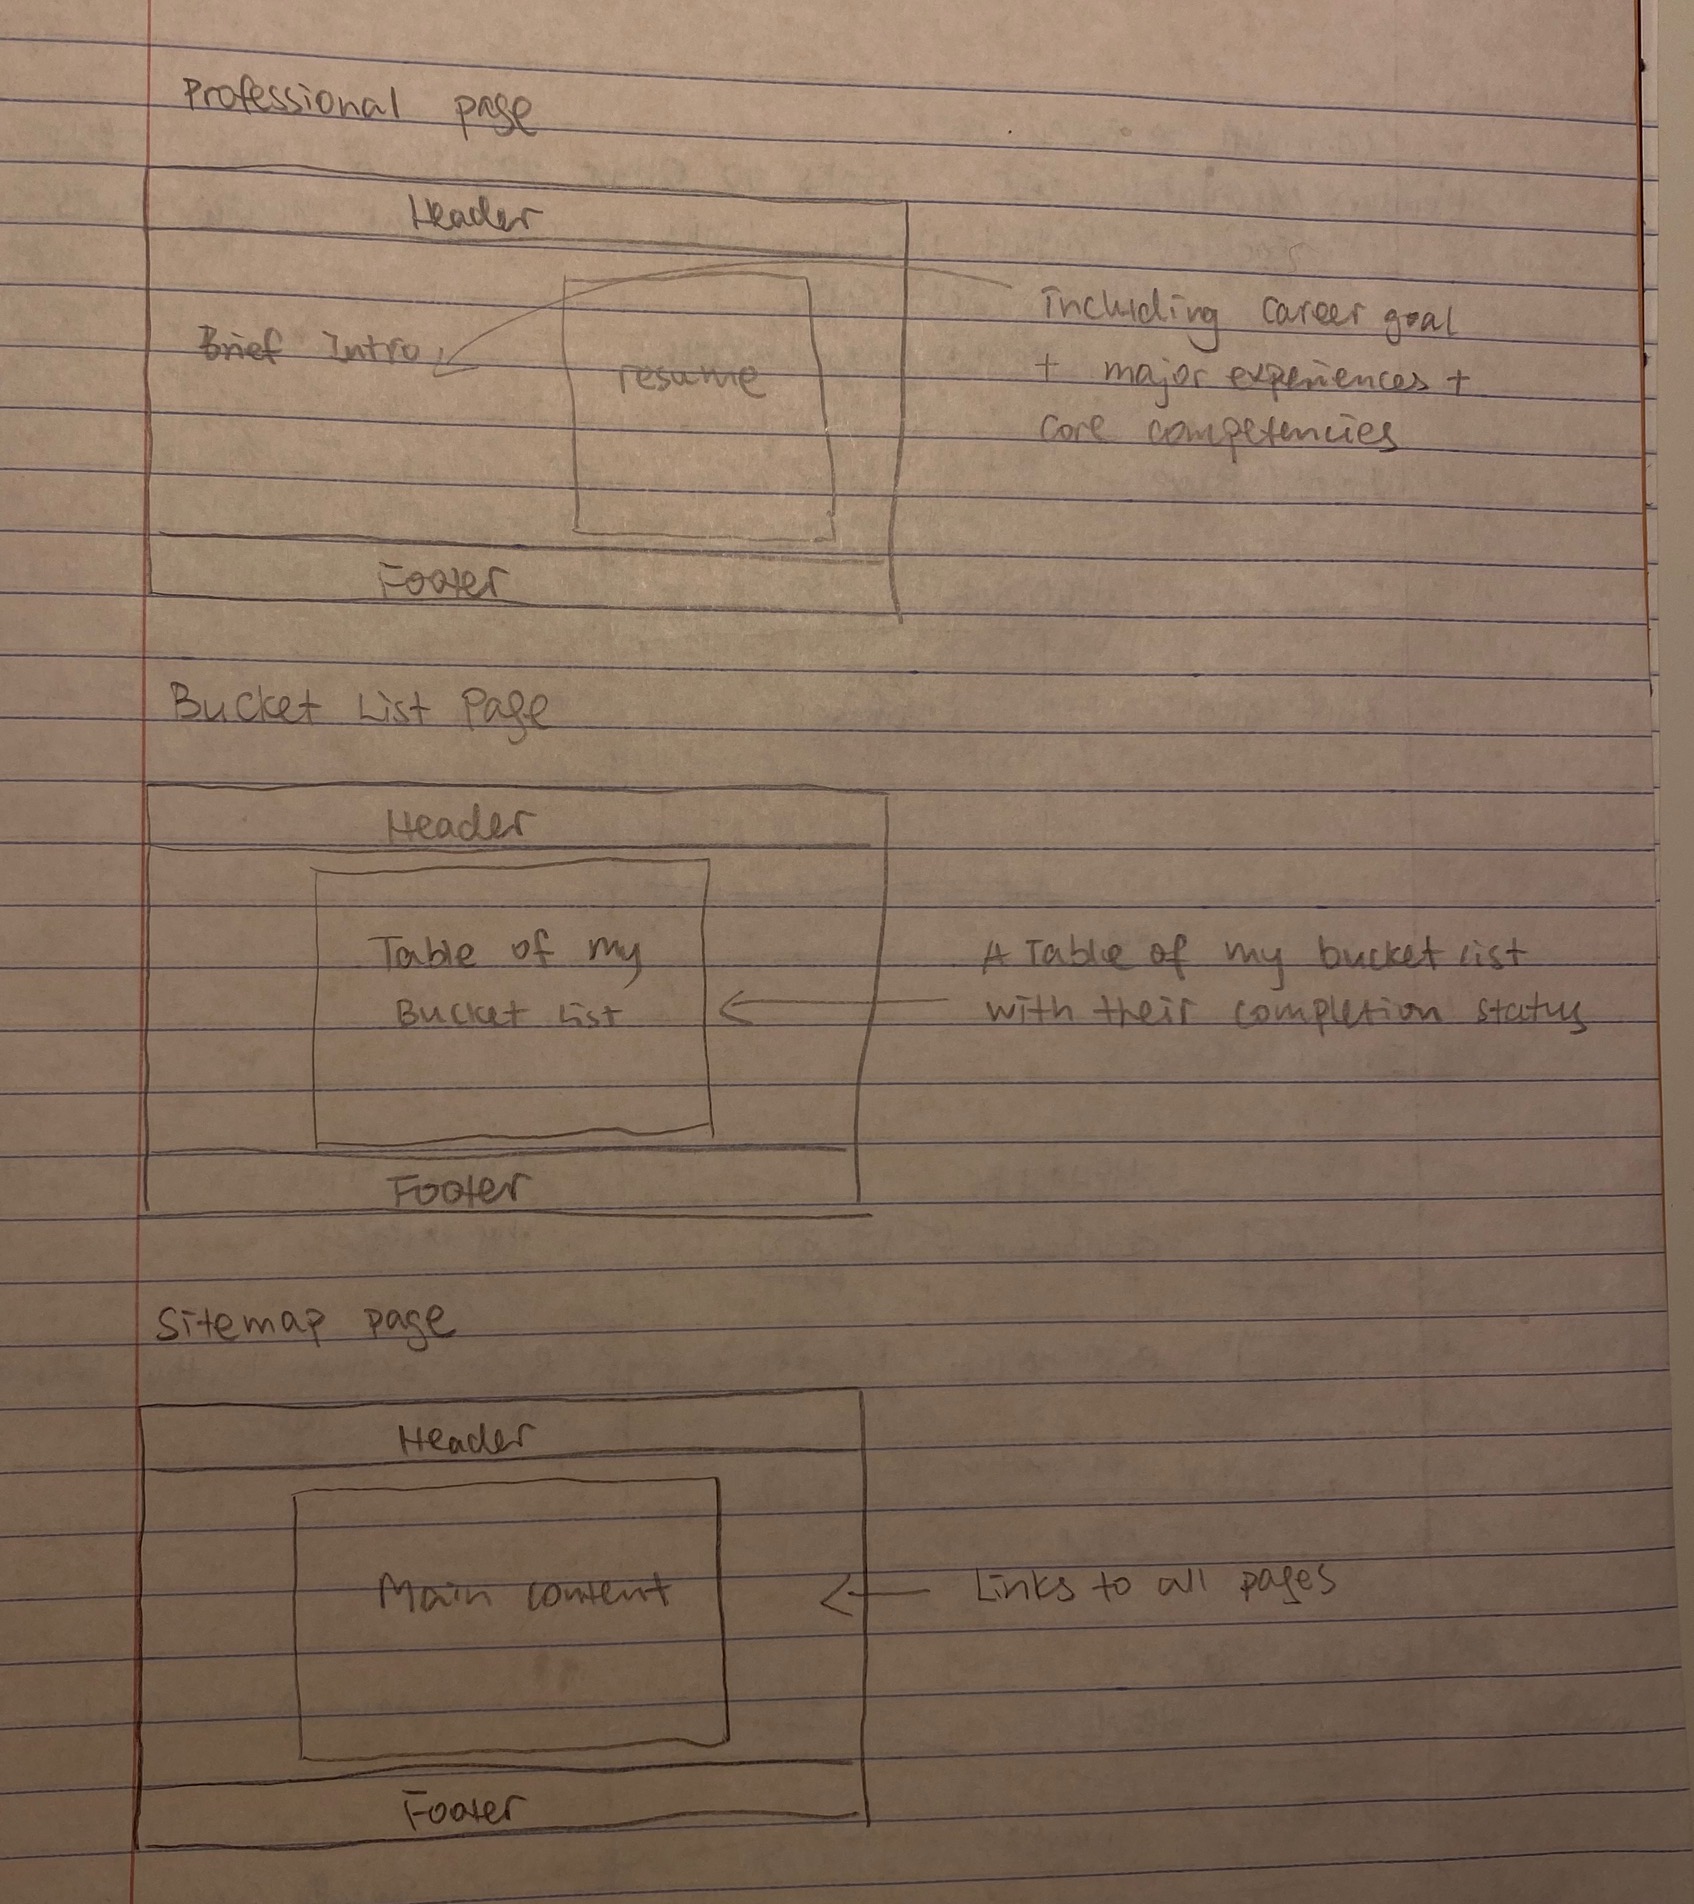 Professional page
Header
Brief Intro
resume
including career goal
+ major experiences +
core competencies
Footer
Bucket List Page
Header
Table of my
Bucket List
A Table of my bucket list
with their completion status
Footer
Sitemap page
Header
Main content
Links to all pages
Footer